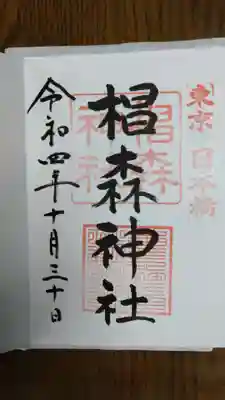 東京 日本橋
椙森神社
椙森
神社
令和四年十月三十日